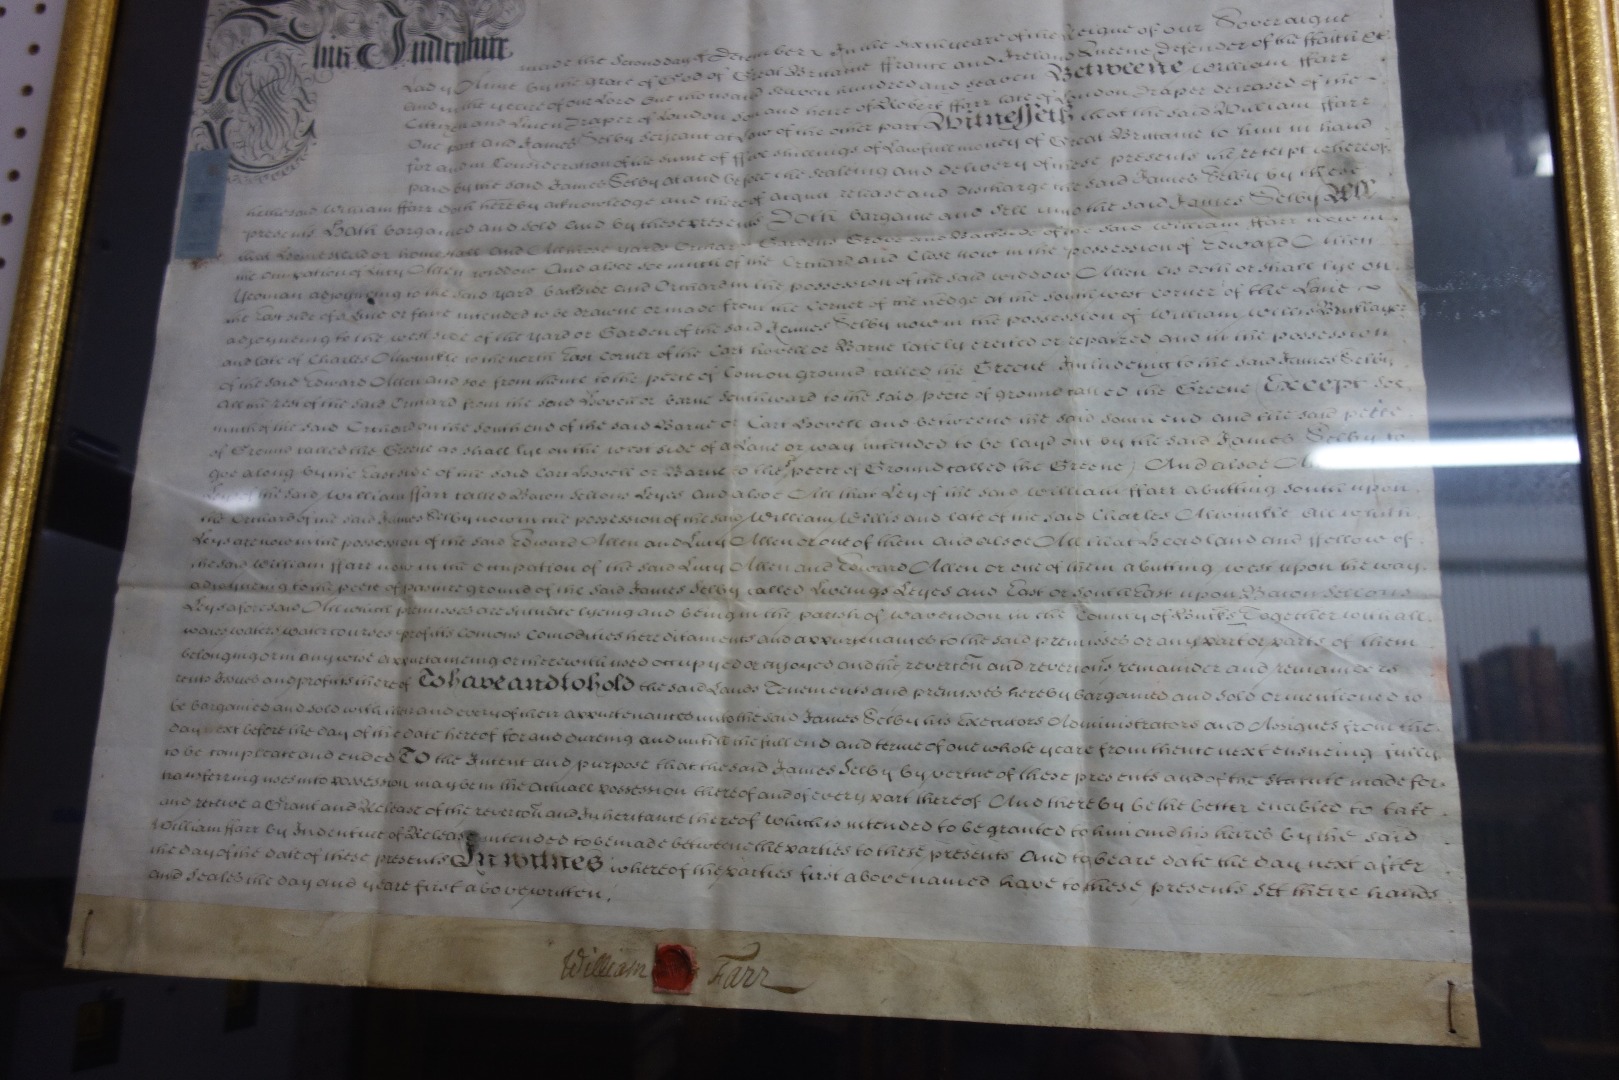 This Indenture made the second day of December In the sixth yeare of the Reigne of our Soveraigne
Lady Anne by the grace of God of Great Britaine ffrance and Ireland Queene Defender of the ffaith &c
And in the yeare of our Lord One thousand seaven hundred and seaven Betweene William ffarr
Cittizen and Linen Draper of London son and heire of Robert ffarr late of London Draper deceased of the
One part and James Selby Serjeant at Law of the other part Witnesseth that the said William ffarr
for and in Consideration of the sume of ffive shillings of Lawfull money of Great Britaine to him in hand
paid by the said James Selby at and before the sealing and delivery of these presents the receipt whereof
he the said William ffarr doth hereby acknowledge and thereof acquit release and discharge the said James Selby by these
presents Hath bargained and sold and by these presents Doth bargaine and sell unto the said James Selby All
that Homestead or homestall And All those yards Orchard Gardens Grove and Backside of the said William ffarr now in
the occupation of Lucy Allen widdow And alsoe soe much of the Orchard and Close now in the possession of Edward Allen
Yeoman adjoyning to the said yard backside and Orchard in the possession of the said widdow Allen as doth or shall lye on
the East side of a Line or fence intended to be drawne or made from the Corner of the hedge at the South west corner of the Lane
adjoyneing to the west side of the yard or Garden of the said James Selby now in the possession of William Willis
and late of Charles to the north East corner of the Cart hovell or Barne lately erected or repaired and in the possession
of the said Edward Allen and soe from thence to the peece of Comon ground called the Greene Includeing to the said James Selby
All the rest of the said Orchard from the said hovell or barne Southward to the said peece of ground called the Greene (Except soe
much of the said Orchard on the South end of the said Barne or Cart hovell and betweene the said South end and the said peece
of Ground called the Greene as shall lye on the West side of a Lane or way intended to be layd out by the said James Selby to
goe along by the East side of the said Cart hovell or Barne to the peece of Ground called the Greene) And alsoe
Ley of the said William ffarr called Leyes And alsoe All that Ley of the said William ffarr abutting South upon
the Orchard of the said James Selby now in the possession of the said William Willis and late of the said Charles All which
Leys are now in the possession of the said Edward Allen and Lucy Allen or one of them And alsoe All that Head land and ffellow of
the said William ffarr now in the occupation of the said Lucy Allen and Edward Allen or one of them abutting west upon the way
adjoyneing to the peece of pasture ground of the said James Selby called Leyes and East or South East upon
Leys aforesaid All which premisses are scituate lyeing and being in the parish of Wavendon in the County of Bucks Together with all
waies waters water courses profitts Comons Comodities hereditaments and appurtenances to the said premisses or any part or parts of them
belonging or in any wise appertaineing or therewith used occupyed or enjoyed and the revercon and revercons remainder and remainders
rents Issues and profits thereof To have and to hold the said Lands Tenements and premisses hereby bargained and sold or mentioned to
be bargained and sold with their and every of their appurtenances unto the said James Selby his Executors Administrators and Assignes from the
day next before the day of the date hereof for and dureing and untill the full end and terme of one whole yeare from thence next ensueing fully
to be compleate and ended TO the Intent and purpose that the said James Selby by vertue of these presents and of the Statute made for
transferring uses into possession may be in the actuall possession thereof and of every part thereof And thereby be the better enabled to take
and receive a Grant and Release of the revercon and Inheritance thereof which is intended to be granted to him and his heires by the said
William ffarr by Indenture of Release intended to be made betweene the parties to these presents And to beare date the day next after
the day of the date of these presents In witnes whereof the parties first abovenamed have to these presents set theire hands
and seales the day and yeare first abovewritten.
William Farr